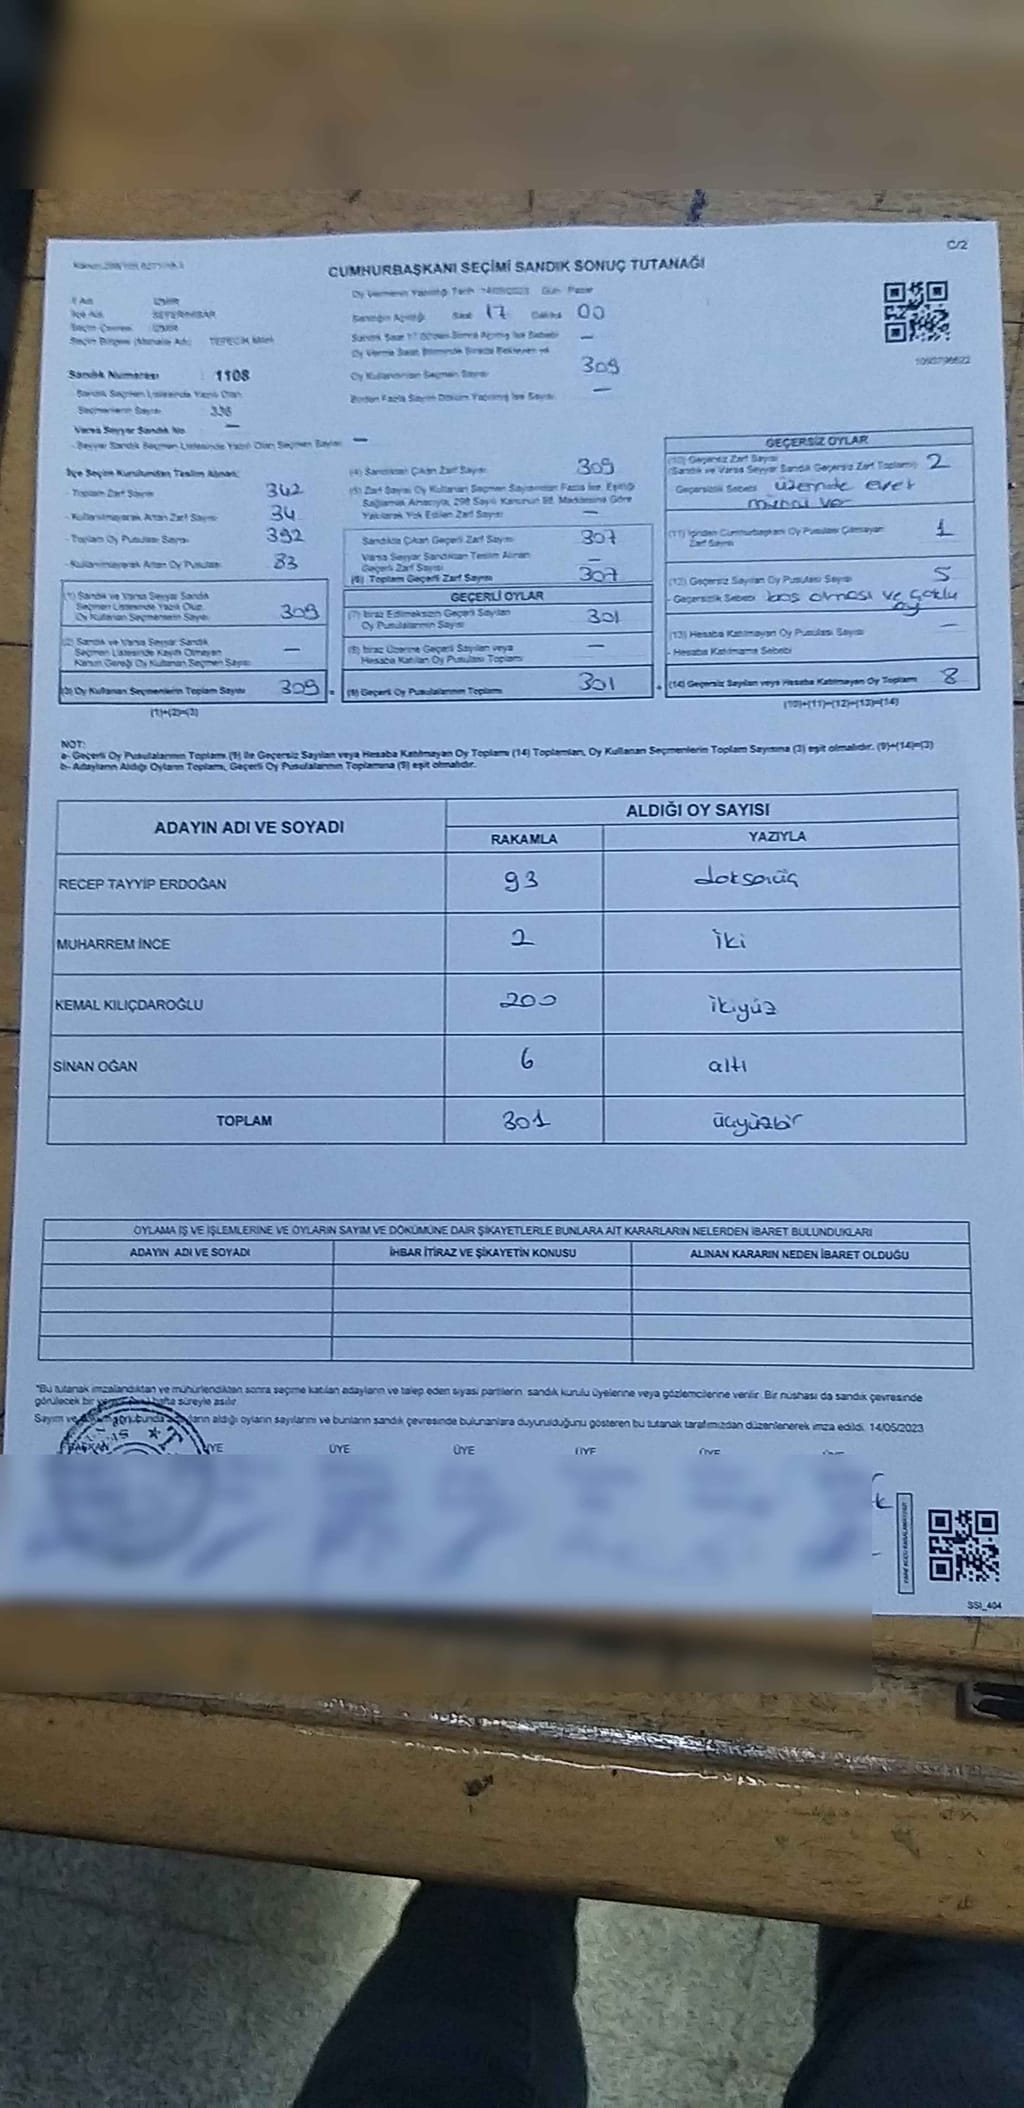 C/2
CUMHURBAŞKANI SEÇİMİ SANDIK SONUÇ TUTANAĞI
Oy Vermenin Yapıldığı Tarih 14/05/2023 Gün Pazar
İl Adı İZMİR
İlçe Adı SEFERİHİSAR
Sandığın Açıldığı Saat 17 Dakika 00
Seçim Çevresi İZMİR
Seçim Bölgesi (Mahalle Adı) TEPECİK MAH.
Sandık Saat 17:00'den Sonra Açılmış İse Sebebi —
1093796622
Sandık Numarası : 1108
Oy Kullandırılan Seçmen Sayısı 309
- Sandık Seçmen Listesinde Yazılı Olan
Seçmenlerin Sayısı
Birden Fazla Sayım Döküm Yapılmış İse Sayısı —
Varsa Seyyar Sandık No —
- Seyyar Sandık Seçmen Listesinde Yazılı Olan Seçmen Sayısı —
İlçe Seçim Kurulundan Teslim Alınan;
- Toplam Zarf Sayısı 342
- Kullanılmayarak Artan Zarf Sayısı 34
- Toplam Oy Pusulası Sayısı 392
- Kullanılmayarak Artan Oy Pusulası 83
(1) Sandık ve Varsa Seyyar Sandık
Seçmen Listesinde Yazılı Olup,
Oy Kullanan Seçmenlerin Sayısı 309
(2) Sandık ve Varsa Seyyar Sandık
Seçmen Listesinde Kayıtlı Olmayan
Kanun Gereği Oy Kullanan Seçmen Sayısı —
(3) Oy Kullanan Seçmenlerin Toplam Sayısı 309
(1)+(2)=(3)
(4) Sandıktan Çıkan Zarf Sayısı 309
(5) Zarf Sayısı Oy Kullanan Seçmen Sayısından Fazla İse, Eşitliği
Sağlamak Amacıyla, 298 Sayılı Kanunun 98. Maddesine Göre
Yakılarak Yok Edilen Zarf Sayısı —
Sandıkta Çıkan Geçerli Zarf Sayısı 307
Varsa Seyyar Sandıktan Teslim Alınan
Geçerli Zarf Sayısı —
(6) Toplam Geçerli Zarf Sayısı 307
GEÇERLİ OYLAR
(7) İtiraz Edilmeksizin Geçerli Sayılan
Oy Pusulalarının Sayısı 301
(8) İtiraz Üzerine Geçerli Sayılan veya
Hesaba Katılan Oy Pusulası Toplamı —
(9) Geçerli Oy Pusulalarının Toplamı 301
GEÇERSİZ OYLAR
(10) Geçersiz Zarf Sayısı
(Sandık ve Varsa Seyyar Sandık Geçersiz Zarf Toplamı) 2
Geçersizlik Sebebi üzerinde evet
mührü var
(11) İçinden Cumhurbaşkanı Oy Pusulası Çıkmayan
Zarf Sayısı 1
(12) Geçersiz Sayılan Oy Pusulası Sayısı 5
- Geçersizlik Sebebi boş olması ve çoklu
oy
(13) Hesaba Katılmayan Oy Pusulası Sayısı —
- Hesaba Katılmama Sebebi
(14) Geçersiz Sayılan veya Hesaba Katılmayan Oy Toplamı 8
(10)+(11)+(12)+(13)=(14)
NOT:
a- Geçerli Oy Pusulalarının Toplamı (9) ile Geçersiz Sayılan veya Hesaba Katılmayan Oy Toplamı (14) Toplamları, Oy Kullanan Seçmenlerin Toplam Sayısına (3) eşit olmalıdır. (9)+(14)=(3)
b- Adayların Aldığı Oyların Toplamı, Geçerli Oy Pusulalarının Toplamına (9) eşit olmalıdır.
ADAYIN ADI VE SOYADI
ALDIĞI OY SAYISI
RAKAMLA YAZIYLA
RECEP TAYYİP ERDOĞAN 93 doksanüç
MUHARREM İNCE 2 iki
KEMAL KILIÇDAROĞLU 200 ikiyüz
SİNAN OĞAN 6 altı
TOPLAM 301 üçyüzbir
OYLAMA İŞ VE İŞLEMLERİNE VE OYLARIN SAYIM VE DÖKÜMÜNE DAİR ŞİKAYETLERLE BUNLARA AİT KARARLARIN NELERDEN İBARET BULUNDUKLARI
ADAYIN ADI VE SOYADI İHBAR İTİRAZ VE ŞİKAYETİN KONUSU ALINAN KARARIN NEDEN İBARET OLDUĞU
*Bu tutanak imzalandıktan ve mühürlendikten sonra seçime katılan adayların ve talep eden siyasi partilerin, sandık kurulu üyelerine veya gözlemcilerine verilir. Bir nüshası da sandık çevresinde
görülecek bir hafta süreyle asılır.
Sayım ve aldığı oyların sayılarını ve bunların sandık çevresinde bulunanlara duyurulduğunu gösteren bu tutanak tarafımızdan düzenlenerek imza edildi. 14/05/2023
BAŞKAN ÜYE ÜYE ÜYE ÜYE ÜYE
SSI_404